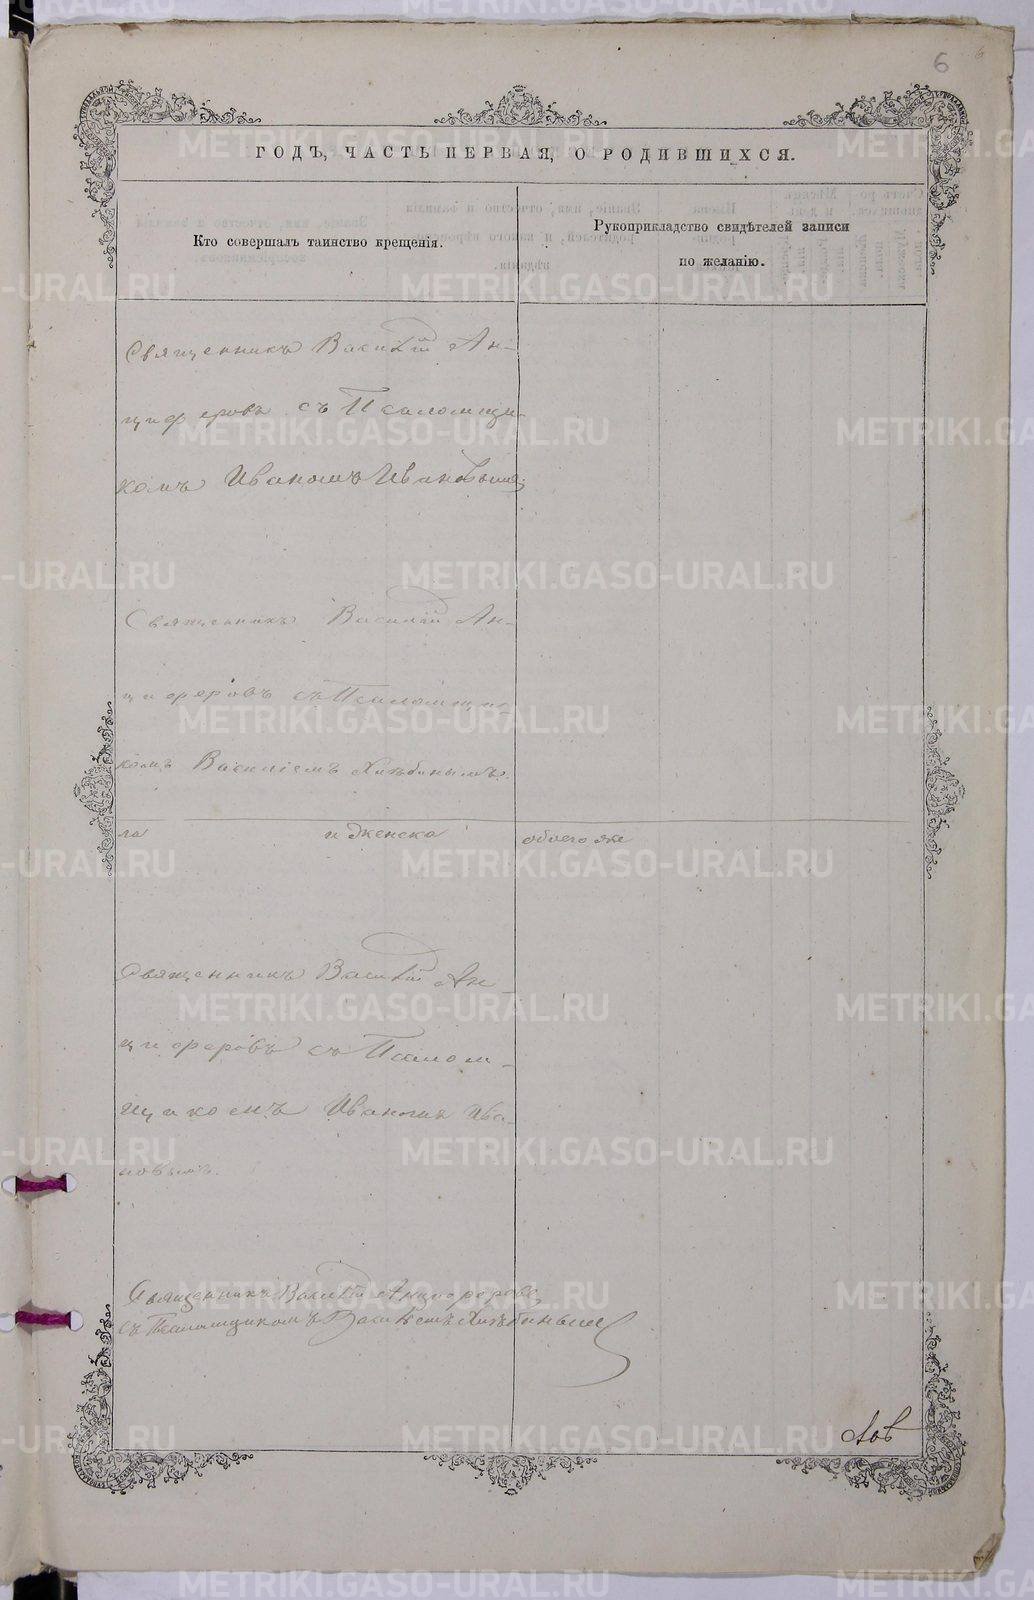 6
ГОДЪ, ЧАСТЬ ПЕРВАЯ, О РОДИВШИХСЯ.
Кто совершалъ таинство крещенія.
Рукоприкладство свидѣтелей записи
по желанію.
Священникъ Василій Ан-
циферовъ съ Псаломщи-
комъ Иваномъ Ивановымъ
Священникъ Василій Ан-
циферовъ съ Псаломщи-
комъ Василіемъ Хлѣбинымъ.
ла и женска обоего же
Священникъ Василій Ан-
циферовъ съ Псалом-
щикомъ Иваномъ Ива-
новымъ.
Священникъ Василій Анциферовъ
съ Псаломщикомъ Василіемъ Хлѣбинымъ
METRIKI.GASO-URAL.RU